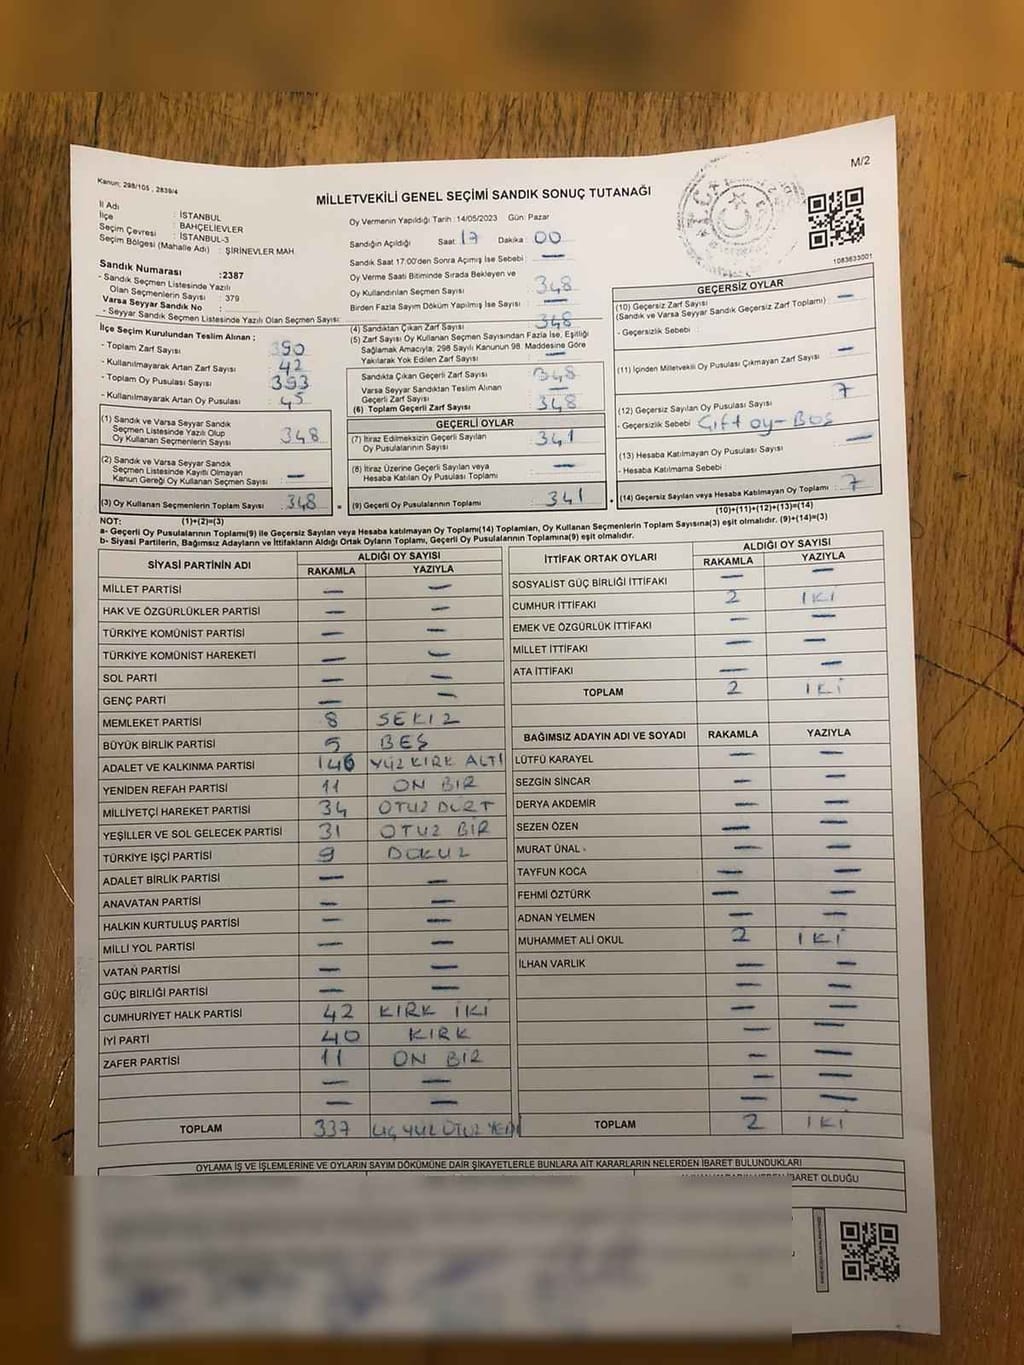 M/2
Kanun: 298/105, 2839/4
MİLLETVEKİLİ GENEL SEÇİMİ SANDIK SONUÇ TUTANAĞI
1083633001
İl Adı : İSTANBUL
İlçe : BAHÇELİEVLER
Seçim Çevresi : İSTANBUL-3
Seçim Bölgesi (Mahalle Adı) : ŞİRİNEVLER MAH.
Sandık Numarası :2387
- Sandık Seçmen Listesinde Yazılı
Olan Seçmenlerin Sayısı : 379
Varsa Seyyar Sandık No :
- Seyyar Sandık Seçmen Listesinde Yazılı Olan Seçmen Sayısı:
İlçe Seçim Kurulundan Teslim Alınan ;
- Toplam Zarf Sayısı : 390
- Kullanılmayarak Artan Zarf Sayısı : 42
- Toplam Oy Pusulası Sayısı : 393
- Kullanılmayarak Artan Oy Pusulası : 45
(1) Sandık ve Varsa Seyyar Sandık
Seçmen Listesinde Yazılı Olup
Oy Kullanan Seçmenlerin Sayısı : 348
(2) Sandık ve Varsa Seyyar Sandık
Seçmen Listesinde Kayıtlı Olmayan
Kanun Gereği Oy Kullanan Seçmen Sayısı : —
(3) Oy Kullanan Seçmenlerin Toplam Sayısı : 348
Oy Vermenin Yapıldığı Tarih :14/05/2023 Gün: Pazar
Sandığın Açıldığı Saat: 17 Dakika : 00
Sandık Saat 17:00'den Sonra Açımış İse Sebebi : —
Oy Verme Saati Bitiminde Sırada Bekleyen ve
Oy Kullandırılan Seçmen Sayısı : 348
Birden Fazla Sayım Döküm Yapılmış İse Sayısı : —
(4) Sandıktan Çıkan Zarf Sayısı : 348
(5) Zarf Sayısı Oy Kullanan Seçmen Sayısından Fazla İse, Eşitliği
Sağlamak Amacıyla; 298 Sayılı Kanunun 98. Maddesine Göre
Yakılarak Yok Edilen Zarf Sayısı : —
Sandıkta Çıkan Geçerli Zarf Sayısı : 348
Varsa Seyyar Sandıktan Teslim Alınan
Geçerli Zarf Sayısı : —
(6) Toplam Geçerli Zarf Sayısı : 348
GEÇERLİ OYLAR
(7) İtiraz Edilmeksizin Geçerli Sayılan
Oy Pusulası Toplamı : 341
(8) İtiraz Üzerine Geçerli Sayılan veya
Hesaba Katılan Oy Pusulası Toplamı : —
(9) Geçerli Oy Pusulalarının Toplamı : 341
GEÇERSİZ OYLAR
(10) Geçersiz Zarf Sayısı
(Sandık ve Varsa Seyyar Sandık Geçersiz Zarf Toplamı) : —
- Geçersizlik Sebebi :
(11) İçinden Milletvekili Oy Pusulası Çıkmayan Zarf Sayısı : —
(12) Geçersiz Sayılan Oy Pusulası Sayısı : 7
- Geçersizlik Sebebi : Çift oy-Boş
(13) Hesaba Katılmayan Oy Pusulası Sayısı : —
- Hesaba Katılmama Sebebi :
(14) Geçersiz Sayılan veya Hesaba Katılmayan Oy Toplamı : 7
(10)+(11)+(12)+(13)=(14)
NOT: (1)+(2)=(3)
a- Geçerli Oy Pusulalarının Toplamı(9) ile Geçersiz Sayılan veya Hesaba katılmayan Oy Toplamı(14) Toplamları, Oy Kullanan Seçmenlerin Toplam Sayısına(3) eşit olmalıdır. (9)+(14)=(3)
b- Siyasi Partilerin, Bağımsız Adayların ve İttifakların Aldığı Ortak Oyların Toplamı, Geçerli Oy Pusulalarının Toplamına(9) eşit olmalıdır.
SİYASİ PARTİNİN ADI ALDIĞI OY SAYISI
RAKAMLA YAZIYLA
MİLLET PARTİSİ — —
HAK VE ÖZGÜRLÜKLER PARTİSİ — —
TÜRKİYE KOMÜNİST PARTİSİ — —
TÜRKİYE KOMÜNİST HAREKETİ — —
SOL PARTİ — —
GENÇ PARTİ — —
MEMLEKET PARTİSİ 8 SEKİZ
BÜYÜK BİRLİK PARTİSİ 5 BEŞ
ADALET VE KALKINMA PARTİSİ 146 YÜZ KIRK ALTI
YENİDEN REFAH PARTİSİ 11 ON BİR
MİLLİYETÇİ HAREKET PARTİSİ 34 OTUZ DÖRT
YEŞİLLER VE SOL GELECEK PARTİSİ 31 OTUZ BİR
TÜRKİYE İŞÇİ PARTİSİ 9 DOKUZ
ADALET BİRLİK PARTİSİ — —
ANAVATAN PARTİSİ — —
HALKIN KURTULUŞ PARTİSİ — —
MİLLİ YOL PARTİSİ — —
VATAN PARTİSİ — —
GÜÇ BİRLİĞİ PARTİSİ — —
CUMHURİYET HALK PARTİSİ 42 KIRK İKİ
İYİ PARTİ 40 KIRK
ZAFER PARTİSİ 11 ON BİR
— —
— —
TOPLAM 337 ÜÇ YÜZ OTUZ YEDİ
İTTİFAK ORTAK OYLARI ALDIĞI OY SAYISI
RAKAMLA YAZIYLA
SOSYALİST GÜÇ BİRLİĞİ İTTİFAKI — —
CUMHUR İTTİFAKI 2 İKİ
EMEK VE ÖZGÜRLÜK İTTİFAKI — —
MİLLET İTTİFAKI — —
ATA İTTİFAKI — —
TOPLAM 2 İKİ
BAĞIMSIZ ADAYIN ADI VE SOYADI RAKAMLA YAZIYLA
LÜTFÜ KARAYEL — —
SEZGİN SİNCAR — —
DERYA AKDEMİR — —
SEZEN ÖZEN — —
MURAT ÜNAL — —
TAYFUN KOCA — —
FEHMİ ÖZTÜRK — —
ADNAN YELMEN — —
MUHAMMET ALİ OKUL 2 İKİ
İLHAN VARLIK — —
— —
— —
— —
— —
— —
— —
TOPLAM 2 İKİ
OYLAMA İŞ VE İŞLEMLERİNE VE OYLARIN SAYIM DÖKÜMÜNE DAİR ŞİKAYETLERLE BUNLARA AİT KARARLARIN NELERDEN İBARET BULUNDUKLARI
İBARET OLDUĞU